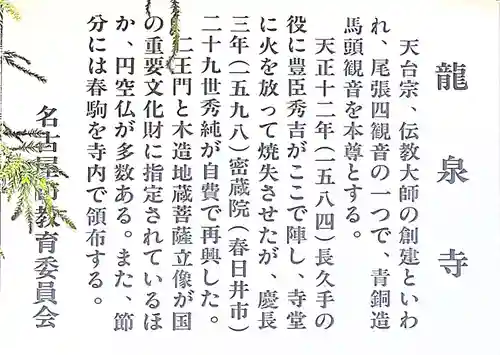 龍泉寺
天台宗、伝教大師の創建といわ
れ、尾張四観音の一つで、青銅造
馬頭観音を本尊とする。
天正十二年(一五八四)長久手の
役に豊臣秀吉がここで陣し、寺堂
に火を放って焼失させたが、慶長
三年(一五九八)密蔵院(春日井市)
二十九世秀純が自費で再興した。
仁王門と木造地蔵菩薩立像が国
の重要文化財に指定されているほ
か、円空仏が多数ある。また、節
分には春駒を寺内で領布する。
名古屋市教育委員会